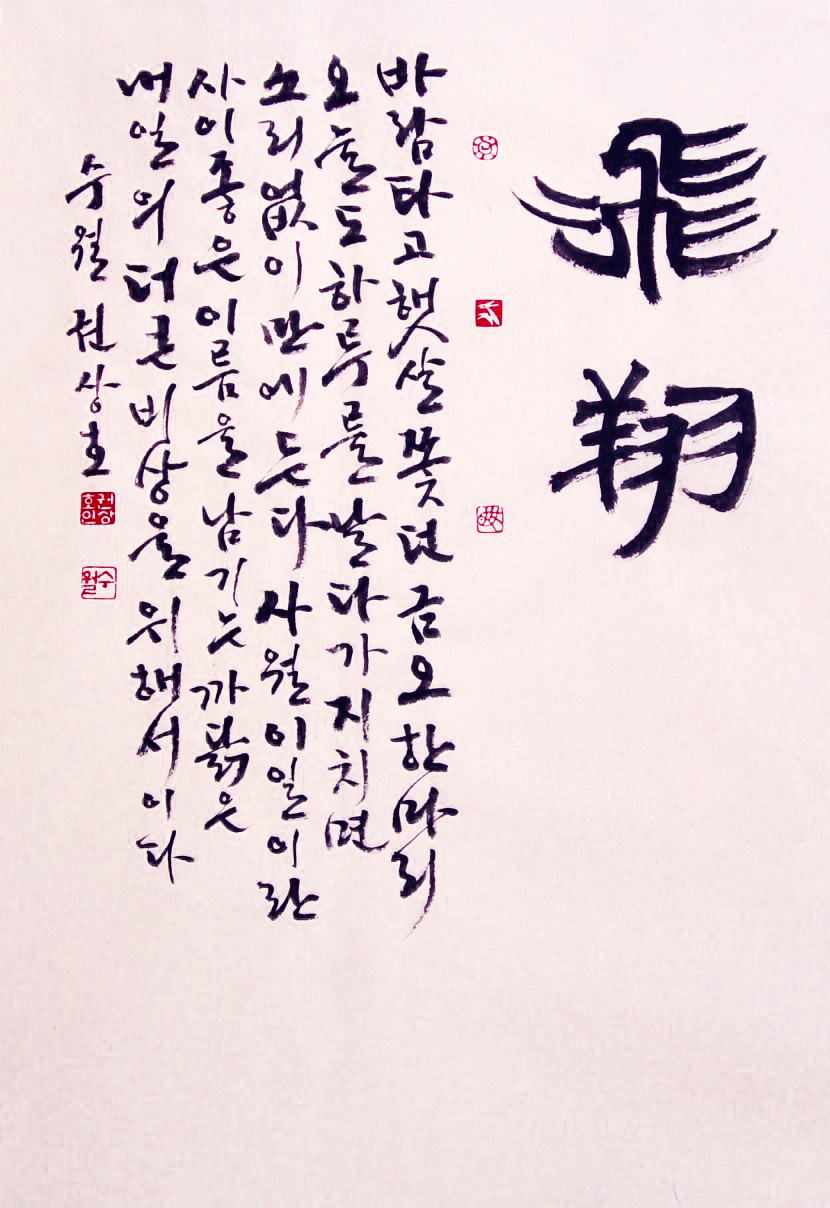 飛翔
바람타고햇살쫓던금오한마리
오늘도하루를날다가지치면
소리없이만에든다사월이일이란
사이좋은이름을남기는까닭은
내일의더큰비상을위해서이다
수월권상호
권상호인
수월